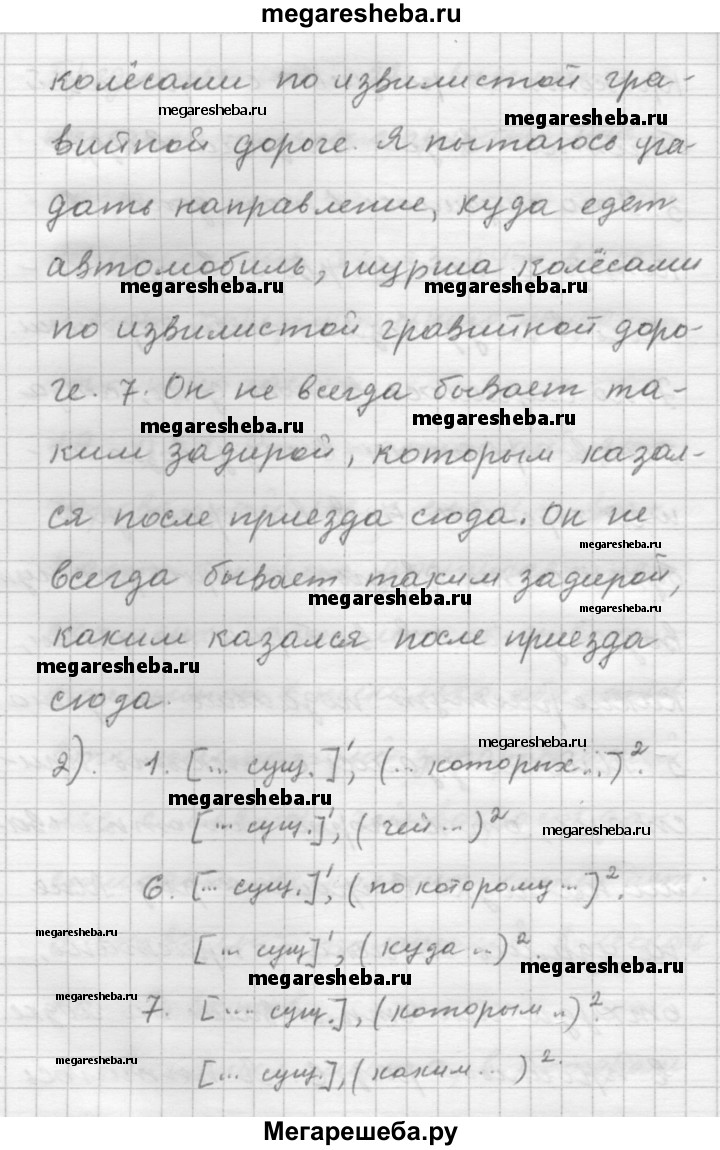 megaresheba.ru
колёсами по извилистой гра-
megaresheba.ru
megaresheba.ru
вийной дороге. Я пытаюсь уга-
дать направление, куда едет
автомобиль, шурша колёсами
megaresheba.ru megaresheba.ru
по извилистой гравийной доро-
ге. 7. Он не всегда бывает та-
megaresheba.ru megaresheba.ru
ким задирой, которым казал-
ся после приезда сюда. Он не
megaresheba.ru
всегда бывает таким задирой,
megaresheba.ru megaresheba.ru
каким казался после приезда
megaresheba.ru
сюда.
2). 1. [... сущ.]¹, (... которых...)².
megaresheba.ru
megaresheba.ru
[... сущ.]¹, (чей...)²
megaresheba.ru
6. [... сущ.]¹, (по которому...)².
megaresheba.ru
[... сущ]¹, (куда ..)².
megaresheba.ru megaresheba.ru
megaresheba.ru
7. [.... сущ.], (которым ..)².
megaresheba.ru
[... сущ.], (каким...)².
Мегарешеба.ру